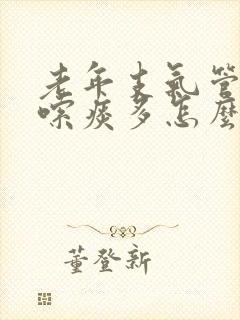 老年支氣管
嗽痰多怎麼
董登新